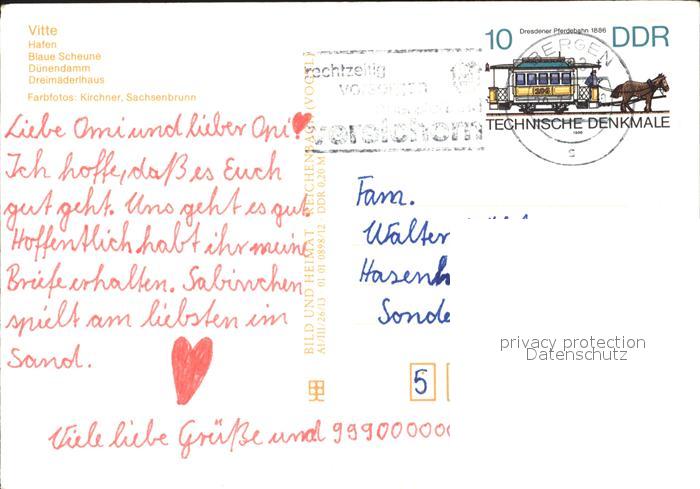 Vitte
Hafen
Blaue Scheune
Dünendamm
Dreimäderlhaus
Farbfotos: Kirchner, Sachsenbrunn
Liebe Omi und lieber Opi!
Ich hoffe, daß es Euch
gut geht. Uns geht es gut.
Hoffentlich habt ihr meine
Briefe erhalten. Sabinchen
spielt am liebsten im
Sand.
Viele liebe Grüße und 99900000
BILD UND HEIMAT REICHENBACH (VOGTL)
A1/III/26/13 01 01 0898/12 DDR 0,20 M
rechtzeitig
BERGEN
10 Dresdener Pferdebahn 1886 DDR
TECHNISCHE DENKMALE
1986
Fam.
Walter
Hasen
Sonde
5
privacy protection
Datenschutz